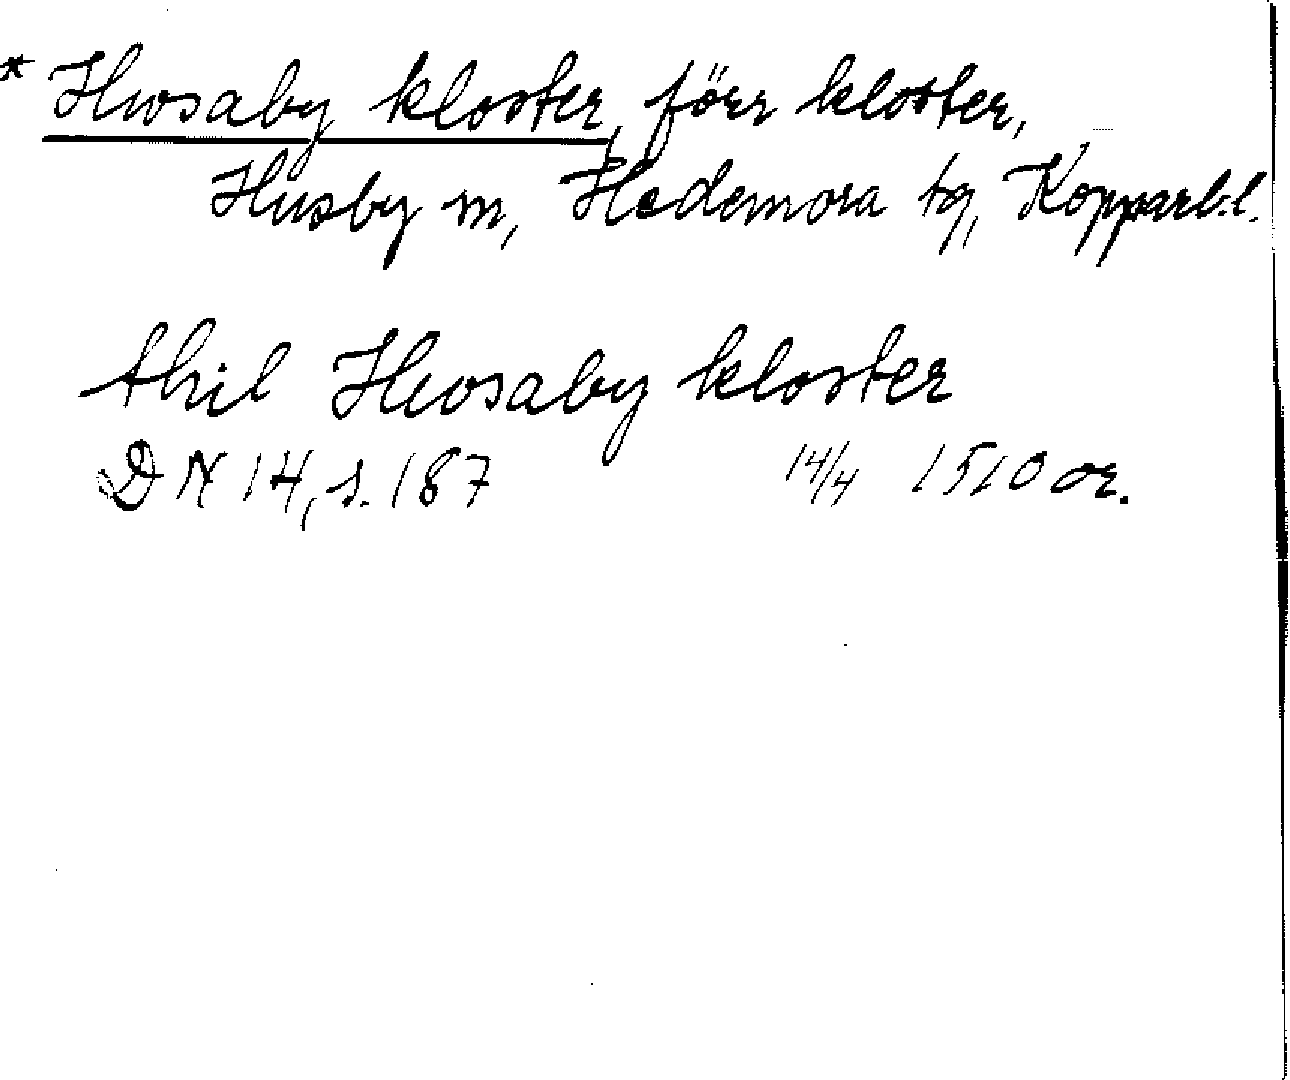 * Hwsaby kloster, förr kloster,
Husby sn, Hedemora tg, Kopparb.l.
thil Hwsaby kloster
DN 14, s. 187 14/4 1510 or.